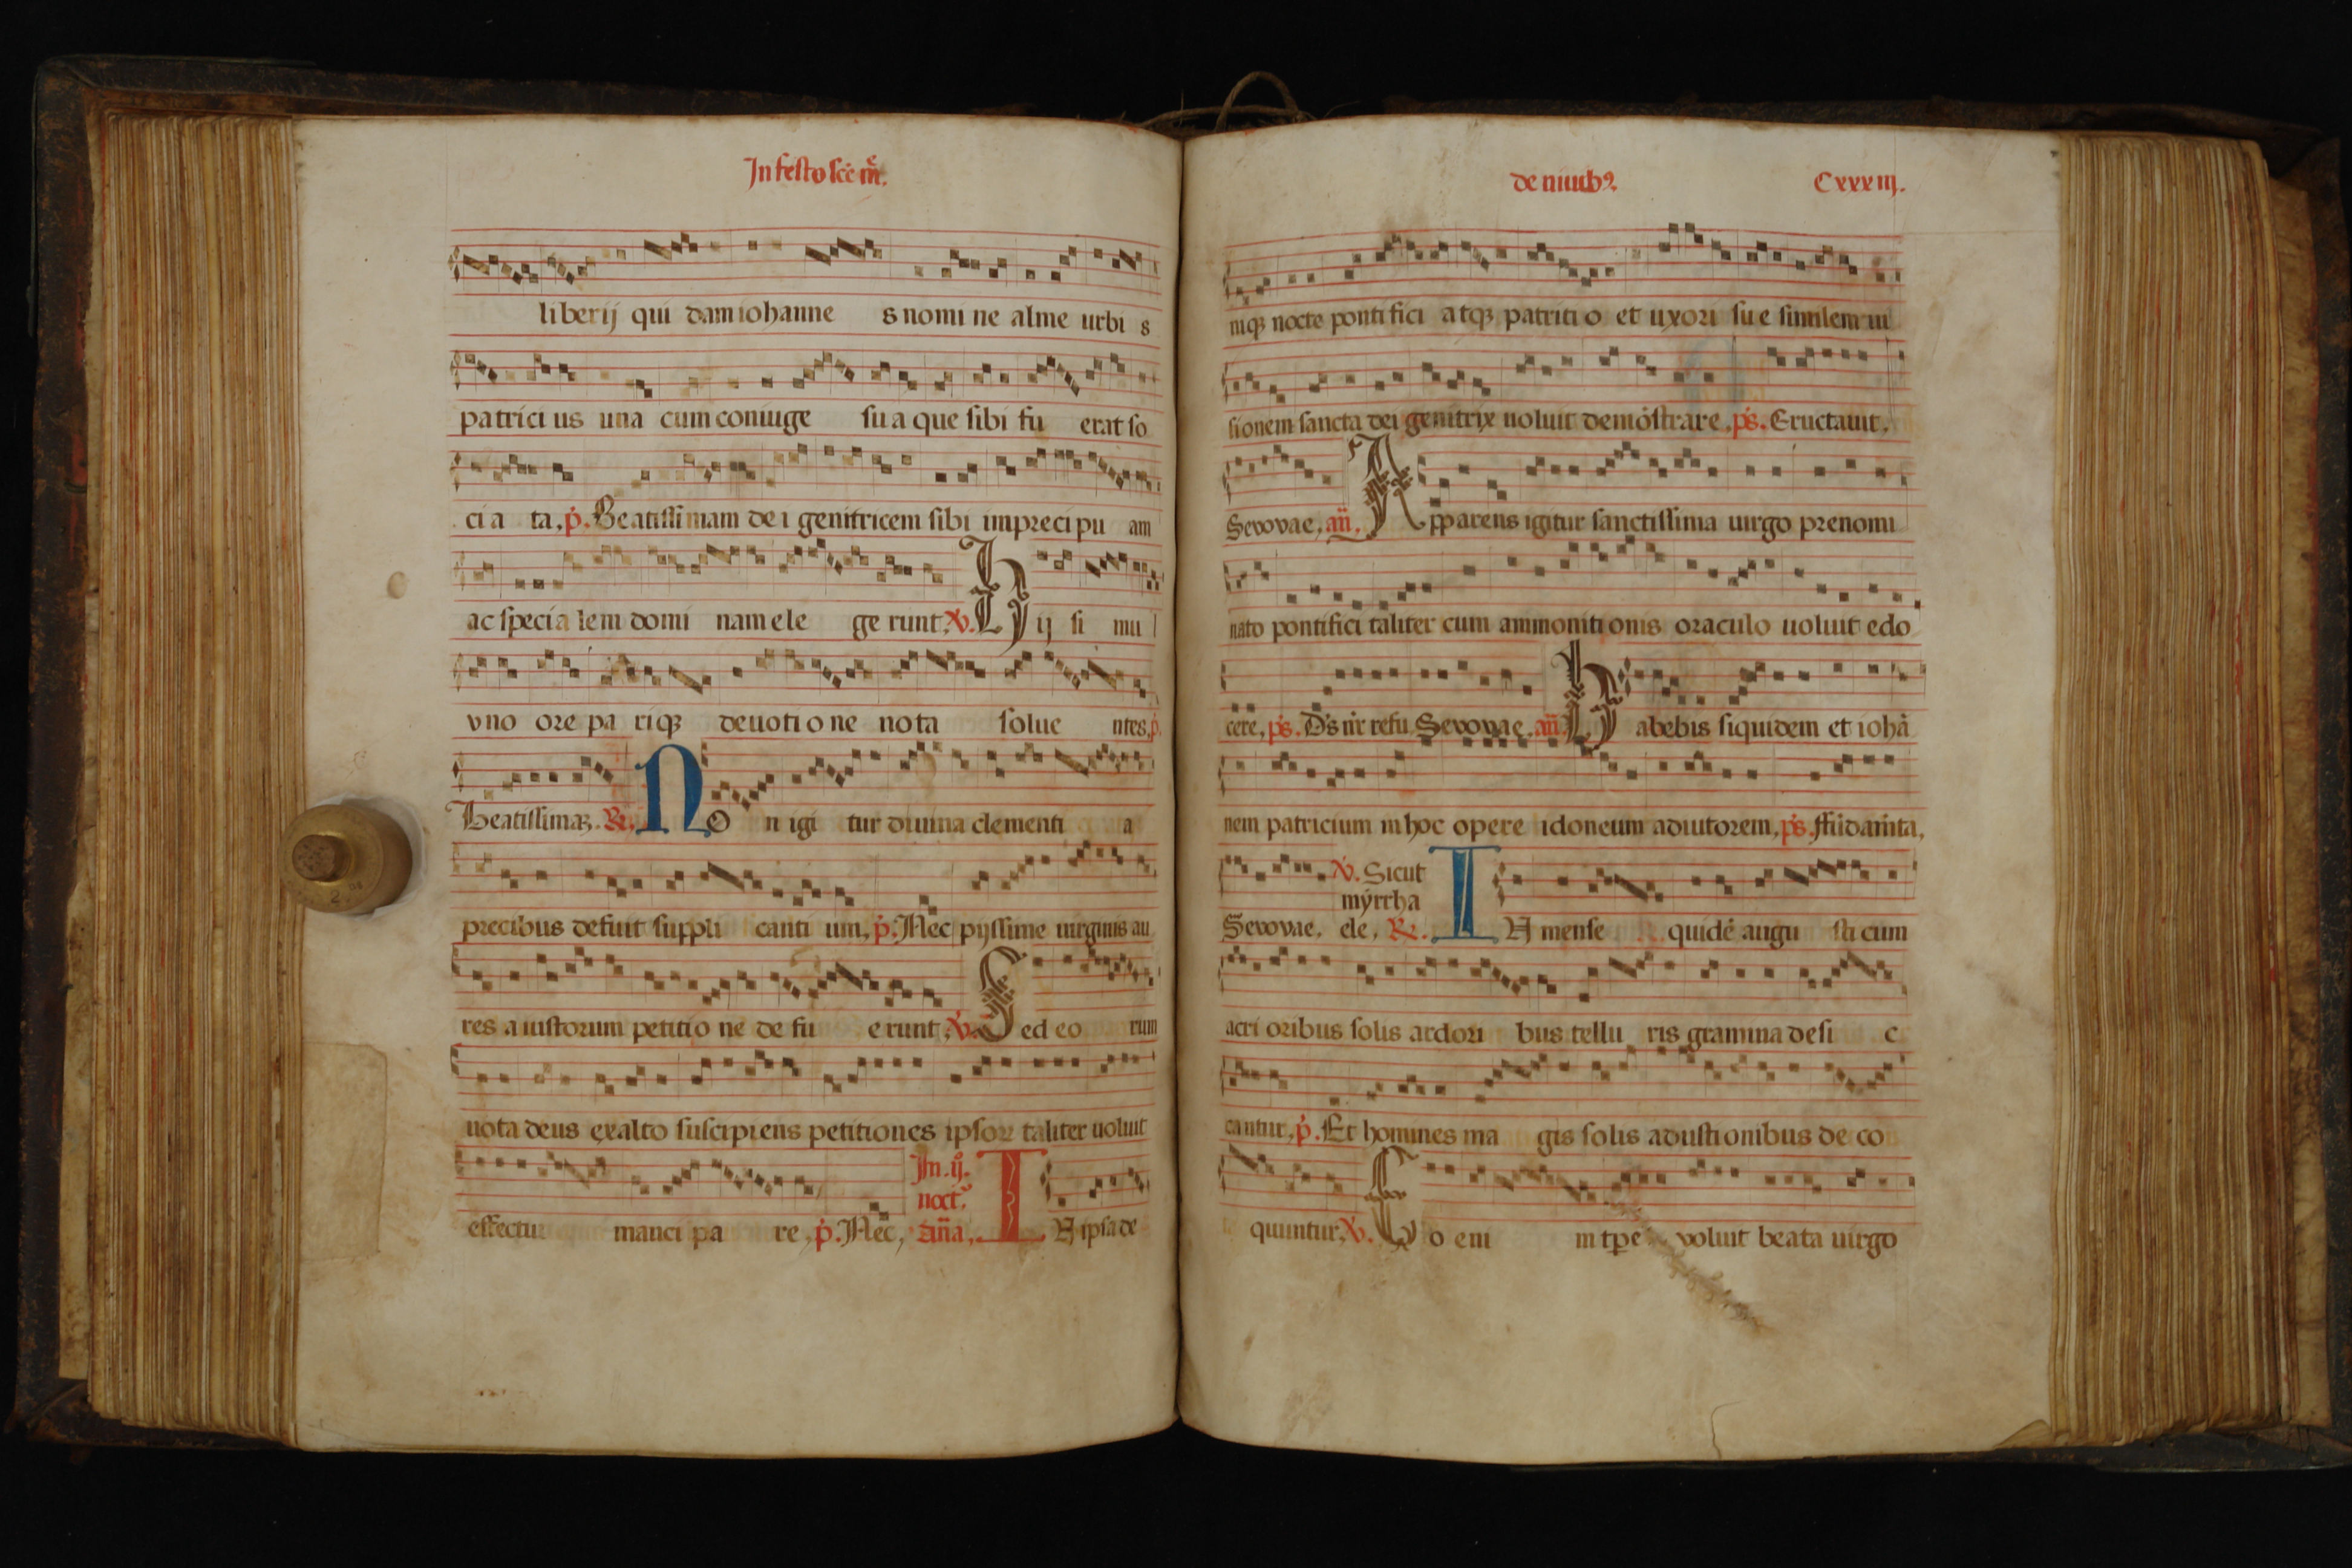 In festo sce mr̄.
liberij qui dam iohanne s nomi ne alme urbi s
patrici us una cum coniuge su a que sibi fu erat so
ci a ta, p̄. Beatissimam de i genitricem sibi in preci pu am
ac speci a lem domi nam ele ge runt, V̇. Hij si mu l
vno ore pa riqꝫ deuoti o ne nota solue ntes, p̄.
Beatissimaꝫ. R. No n igi tur diuina clementi a
precibus defuit suppli canti um, p̄. Nec pijssime uirginis au
res a iustorum petiti o ne de fu e runt, V̇. Sed eo rum
uota deus exalto suscipiens petitiones ipsoꝝ taliter uoluit
effectu manci pa re, p̄. Nec, In. ij. noct. an̄a, In ipsa de
de niuibꝰ
Cxxxiij.
niqꝫ nocte ponti fici atqꝫ patriti o et uxori su e similem ui
sionem sancta dei genitrix uoluit demōstrare, ps. Eructauit,
Sevovae, an̄. Apparens igitur sanctissima uirgo prenomi
nato pontifici taliter cum ammoniti onis oraculo uoluit edo
cere, ps. Ds nr refu. Sevovae, an̄. Habebis siquidem et iohā
nem patricium in hoc opere idoneum adiutorem, ps. Fūdamta,
V̇. Sicut
myrrha
Sevovae, ele, R. IN mense quidē augu sti cum
acri oribus solis ardori bus tellu ris gramina desi c
cantur, p̄. Et homines ma gis solis adusti onibus de co
quuntur, V̇. Eo eni m tꝑe voluit beata uirgo